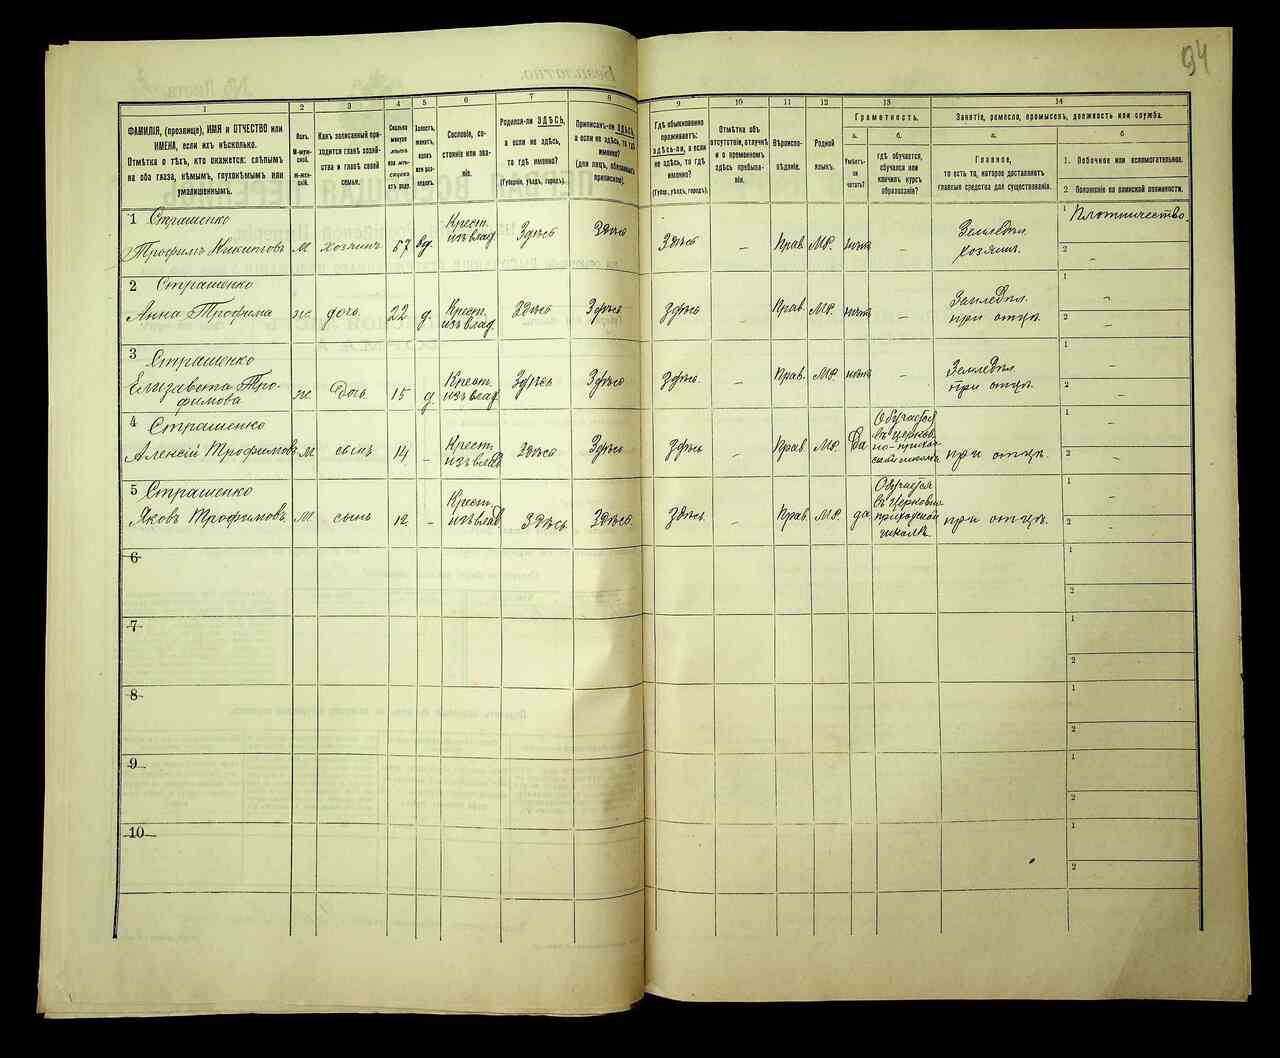 94
1
ФАМИЛІЯ, (прозвище), ИМЯ и ОТЧЕСТВО или
ИМЕНА, если ихъ нѣсколько.
Отмѣтка о тѣхъ, кто окажется: слѣпымъ
на оба глаза, нѣмымъ, глухонѣмымъ или
умалишеннымъ.
2
Полъ.
М-муж-
ской.
ж-жен-
скій.
3
Какъ записанный при-
ходится главѣ хозяй-
ства и главѣ своей
семьи.
4
Сколько
минуло
лѣтъ
или мѣ-
сяцевъ
отъ роду.
5
Холостъ,
женатъ,
вдовъ
или раз-
веденъ.
6
Сословіе, со-
стояніе или зва-
ніе.
7
Родился-ли ЗДѢСЬ,
а если не здѣсь,
то гдѣ именно?
(Губернія, уѣздъ, городъ).
8
Приписанъ-ли ЗДѢСЬ,
а если не здѣсь, то гдѣ
именно?
(для лицъ, обязанныхъ
припиской).
9
Гдѣ обыкновенно
проживаетъ:
ЗДѢСЬ-ли, а если
не здѣсь, то гдѣ
именно?
(Губер., уѣздъ, городъ).
10
Отмѣтка объ
отсутствіи, отлучкѣ
и о временномъ
здѣсь пребыва-
ніи.
11
Вѣроиспо-
вѣданіе.
12
Родной
языкъ.
13
Грамотность.
а.
Умѣетъ-
ли
читать?
б.
гдѣ обучается,
обучался или
кончилъ курсъ
образованія?
14
Занятіе, ремесло, промыселъ, должность или служба.
а.
Главное,
то есть то, которое доставляетъ
главныя средства для существованія.
б
1. Побочное или вспомогательное.
2. Положеніе по воинской повинности.
1 Страшенко
Трофимъ Никитовъ м хозяинъ 57 вд. Крест. изъ влад. Здѣсь Здѣсь Здѣсь – Прав. МР. нѣтъ – Земледѣл. хозяинъ. 1 Плотничество. 2 –
2 Страшенко
Анна Трофима ж дочь 22 д. Крест. изъ влад. Здѣсь Здѣсь Здѣсь – Прав. МР. нѣтъ – Земледѣл. при отцѣ. 1 – 2 –
3 Страшенко
Елизавета Тро-
фимова ж. Дочь 15 д. Крест. изъ влад Здѣсь Здѣсь Здѣсь. – Прав. МР. нѣтъ – Земледѣл. при отцѣ. 1 – 2 –
4 Страшенко
Алексій Трофимовъ м сынъ 14 – Крест. изъ влад Здѣсь Здѣсь Здѣсь – Прав. МР. Да Обучается въ церков- но-приход- ской школѣ при отцѣ. 1 – 2 –
5 Страшенко
Яковъ Трофимовъ. м сынъ 12 – Крест. изъ влад Здѣсь. Здѣсь. Здѣсь. – Прав. МР. да Обучается въ Церковно приходской школѣ. при отцѣ. 1 – 2 –
6 1
2
7 1
2
8 1
2
9 1
2
10 1
2